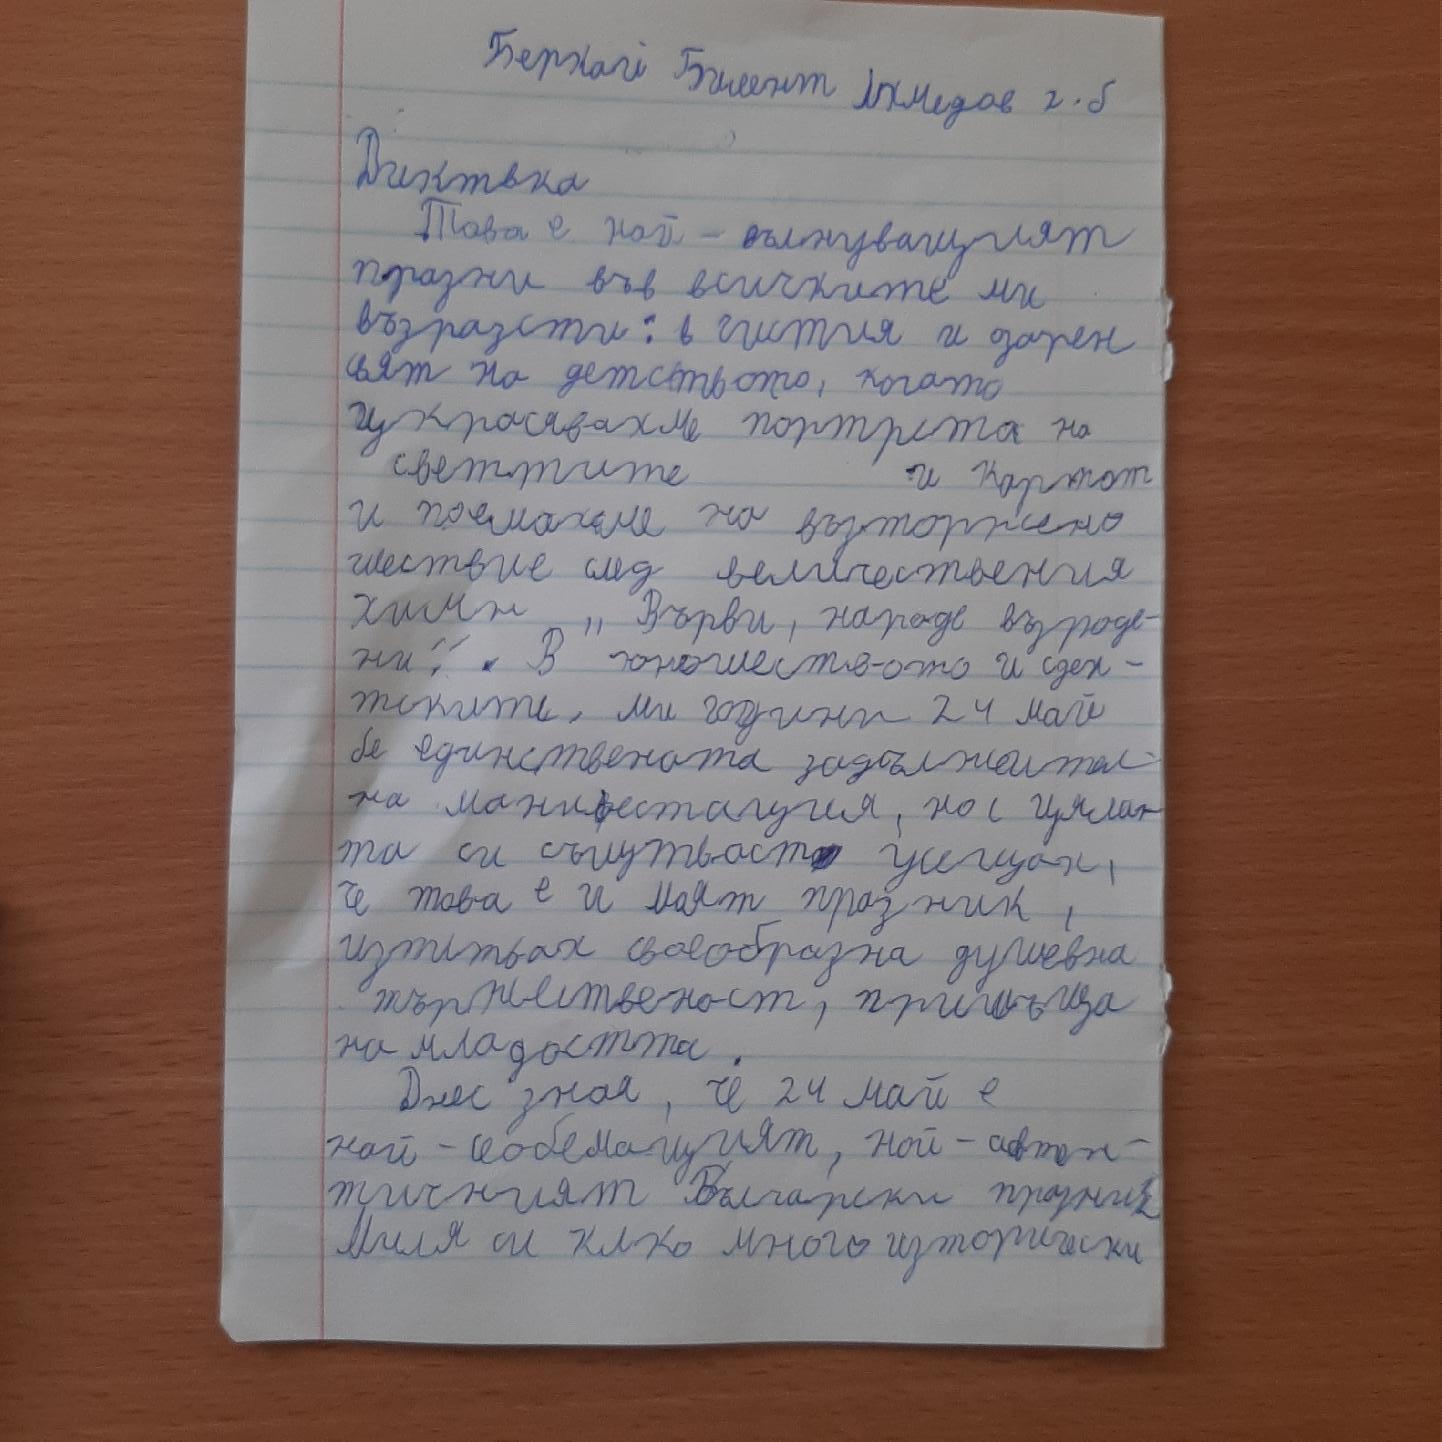 Берхай Билент Ахмедов 2.б
Диктвка
Това е най-вълнуващият
празни във всичките ми
възразсти: в чистия и озарен
свят на детството, когато
украсявахме портрета на
светтите и Картот
и поемахме на възторжено
шествие след величествения
химн „Върви, народе възроде-
ни". В юношеството и сден-
тските, ми години 24 май
бе единствената задължител-
на манифестация, но с цялан-
та си същтвост усещах,
че това е и моят празник,
изптвах своеобразна душевна
тържественост, присъща
на младостта.
Днес зная, че 24 май е
най-всеобемащият, най-автен-
тичният Български празник
Миля си клко много изторически